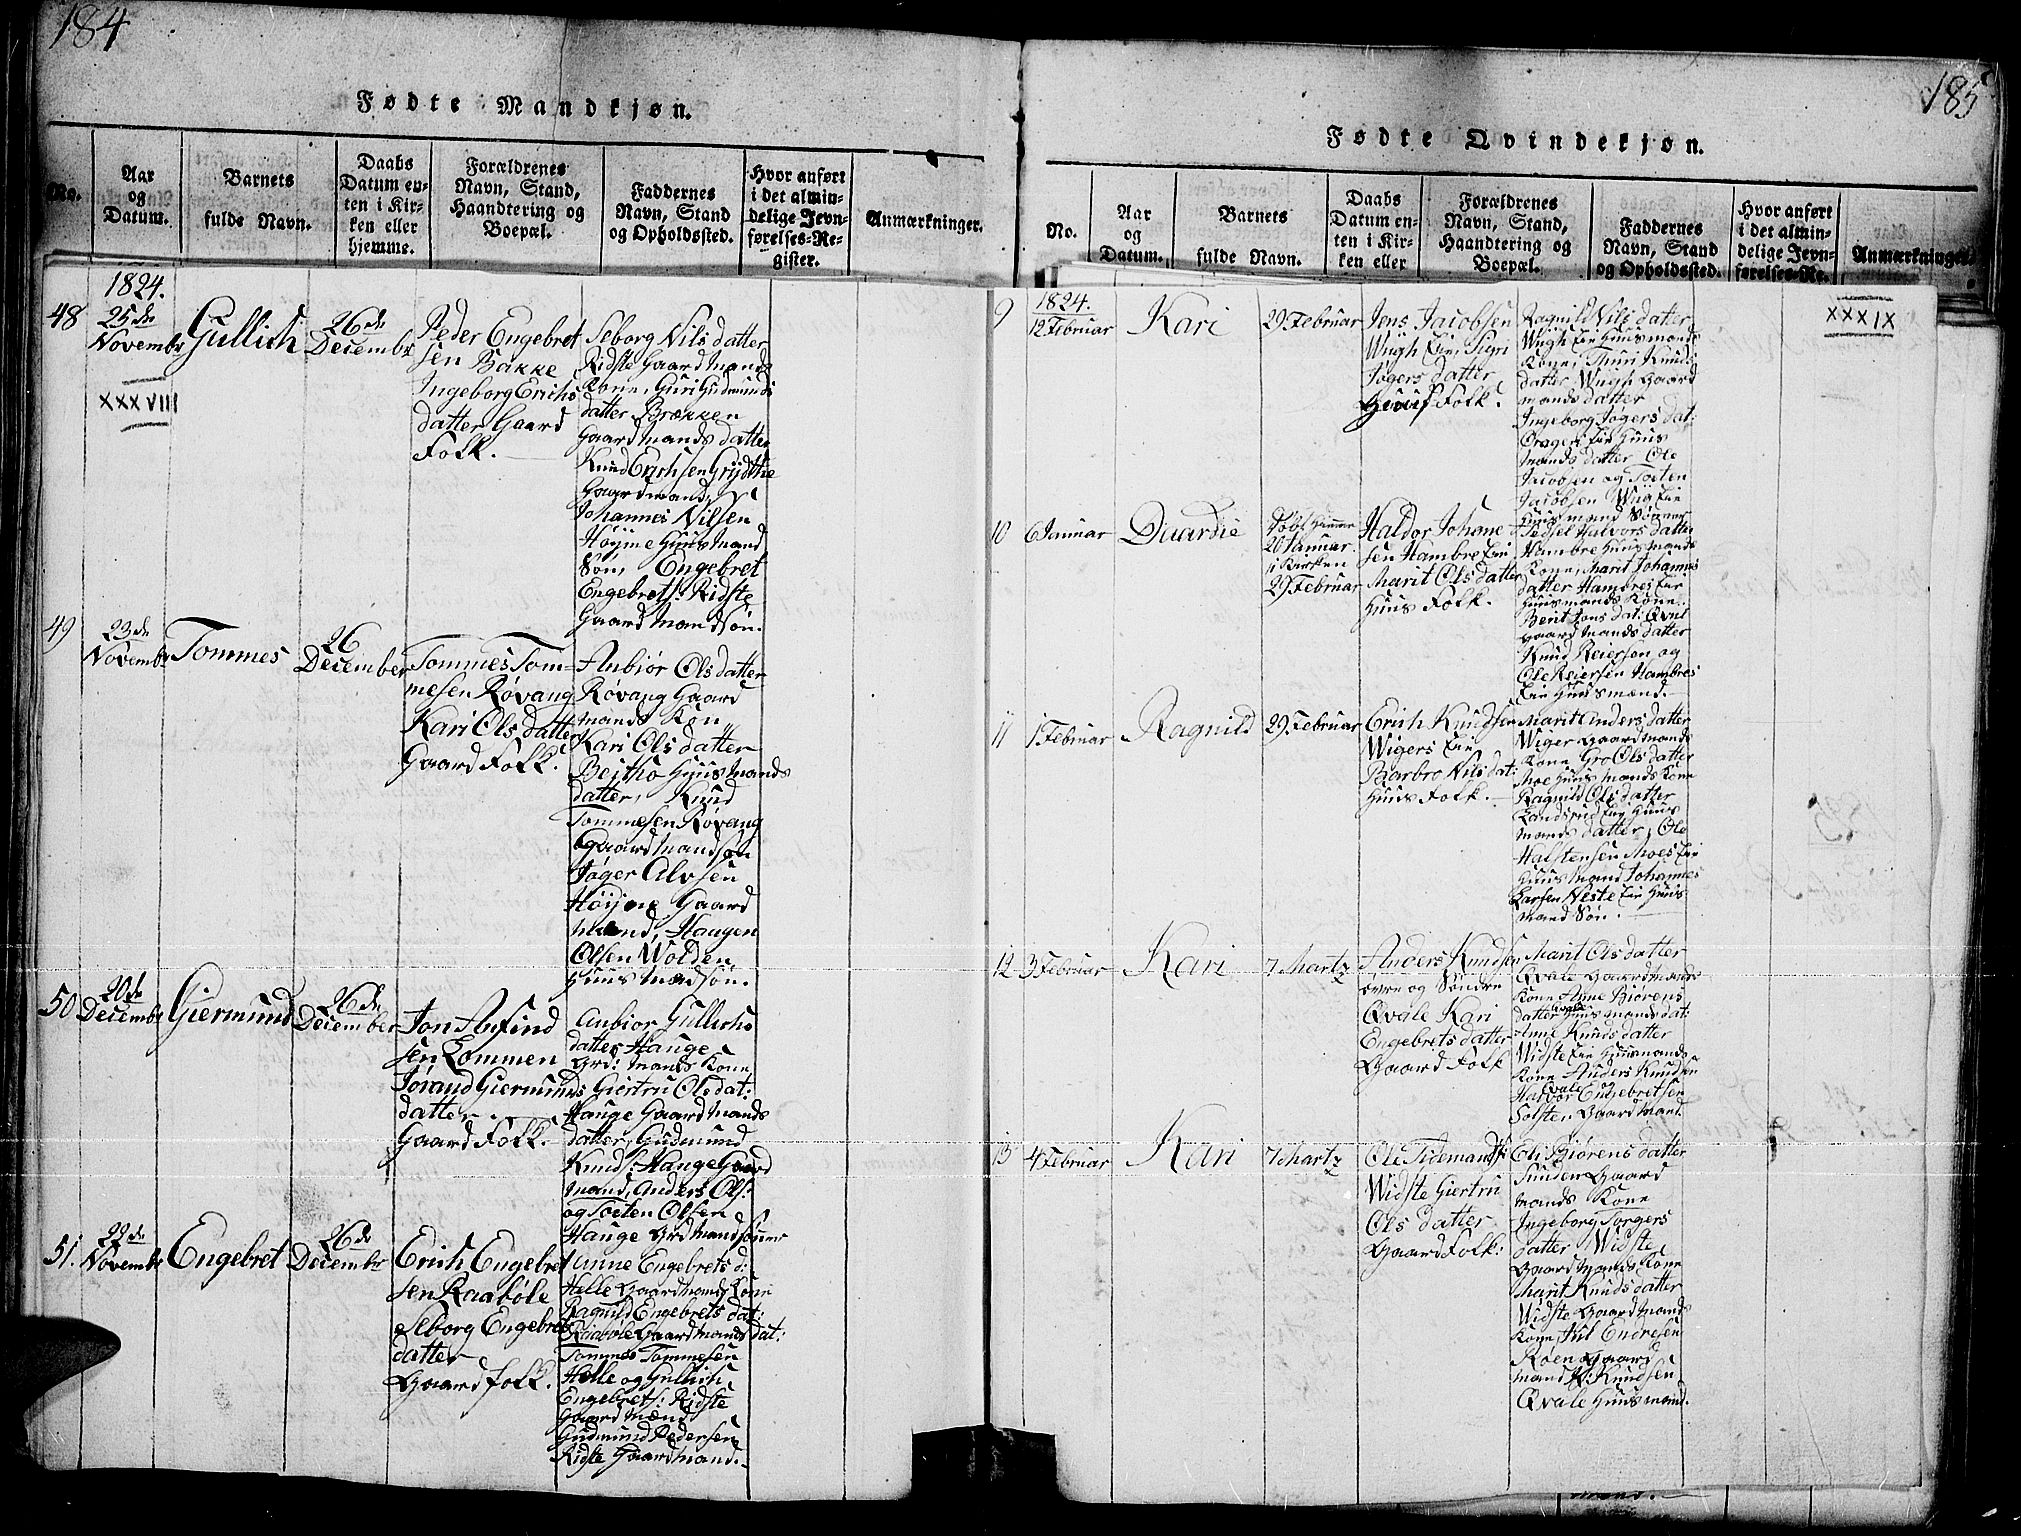 184
Fødte Mandkjøn.
No.
Aar
og
Datum.
Barnets
fulde Navn.
Daabs
Datum en-
ten i Kir-
ken eller
hjemme.
Forældrenes
Navn, Stand,
Haandtering og
Boepæl.
Faddernes
Navn, Stand
og Opholdssted.
Hvor anført
i det almin-
delige Jevn-
førelses-Re-
gister.
Anmærkninger.
1824.
48
25de
Novembr
XXXVIII
Gullich
26de
Decembr
Peder Engebret
sen Bakke
Ingeborg Erichs
datter Gaard
Folk.
Seborg Nils datter
Ridste Gaard mands
Kone, Guri Gudmunds
datter Brækken
Gaard mands datter
Knud Erichsen Grydthe
Gaardmand,
Johannes Nilsen
Höyme Huus mand
Sön, Engebret
Engebrets: Ridste
Gaard Mandsøn.
49
23de
Novembr
Tommes
26
December
Tommes Tom-
mesen Røvang
Kari Ols datter
Gaard Folk.
Anbiør Ols datter
Røvang Gaard
mands Kon
Kari Ols datter
Beitho Huus mands
datter, Knud
Tommesen Røvang
Gaardmandsøn
Jøger Alvsen
Höyme Gaard
mand, Haugen
Olsen Wolden
Huus mandsøn.
50
20de
Decembr
Giermund
26de
December
Jon Anfind
sen Lommen
Jørand Giermunds
datter.
Gaard Folk.
Anbior Gullichs
datter Hauge
Grd: mands Kone
Giertru Ols dat:
Hauge Gaard mands
datter, Gudmund
Knuds: Hauge Gaard
mand, Anders Ols:
og Tosten Olsen
Hauge Grd mandsønner
51.
22de
Novembr
Engebret
26de
Decembr
Erich Engebret
sen Raabøle
Seborg Engebrets
datter
Gaard folk.
Anne Engebrets d:
Helle Gaard mands Kone
Ragnild Engebrets dat:
Raabøle Gaard mands dat:
Tommes Tommesen
Helle og Gullich
Engebrets: Ridste
Gaard Mænd
Gudmund Pedersen
Ridste Gaardmand.
185
Fødte Qvindekjøn.
No.
Aar
og
Datum.
Barnets
fulde Navn.
Daabs
Datum en-
ten i Kir-
ken eller
Forældrenes
Navn, Stand,
Haandtering og
Boepæl.
Faddernes
Navn, Stand
og Opholdssted.
Hvor anført
i det almin-
delige Jevn-
førelses-Re-
Anmærkninger.
XXXIX
9
1824.
12 Februar
Kari
29 Februar
Jens Jacobsen
Wiigh Eie, Sigri
Jøgers datter
Huus Folk.
Ragnild Nils datter
Wiigh Eie Huusmands
Kone, Thuri Knuds
datter Wiigh Gaard
mands datter
Ingeborg Jøgers dat:
Dragers Eie Huus
mands datter Ole
Jacobsen og Tosten
Jacobsen Wiig Eie
Huusmand Sønner
10
6 Januar
Duardie
20 Januar
i Kirken
29 Februar
Haldor Johane
sen Hambre Eie
Marit Ols datter
Huus Folk.
Sedsel Halvors datter
Hambre Huus mands
Kone, Marit Johannes
datter Hambres Eie
Huusmands Kone.
Berit Jons dat: Qvale
Gaard mands datter
Knud Reiersen og
Ole Reiersen Hambres
Eie Huusmænd.
11
1 Februar
Ragnild
29 Februar
Erich Knudsen
Wigers Eie
Barbro Nils dat:
Huus Folk.
Marit Anders datter
Wiger Gaard mands
Kone Gro Ols datter
Moe Huus mands Kone
Ragnild Ols datter
Landsend Eie Huus
mands datter, Ole
Halstensen Moes Eie
Huus mand Johannes
Larsen Neste Eie Huus
mand Søn.
12
3 Februar
Kari
7 Martz
Anders Knudsen
øvre og Søndre
Qvale Kari
Engebrets datter
Gaard Folk
Marit Ols datter
Qvale Gaardmands
Kone Anne Biørens
datter Qvale Huus mands dat:
Anne Knuds datter
Widste Eie Huusmands
Kone Anders Knudsen
Qvale
Halvor Engebretsen
Solster Gaard Mand
13
4 Februar
Kari
7 Martz
Ole Tidemands:
Widste Giertru
Ols datter
Gaard Folk:
Eli Biørens datter
Sunden Gaard
mands Kone
Ingeborg Torgers
datter Widste
Gaard mands Kone
Marit Knuds datter
Widste Gaard mands
Kone, Jul Endresen
Røen Gaard
mand K: Knudsen
Qvale Huus mand.